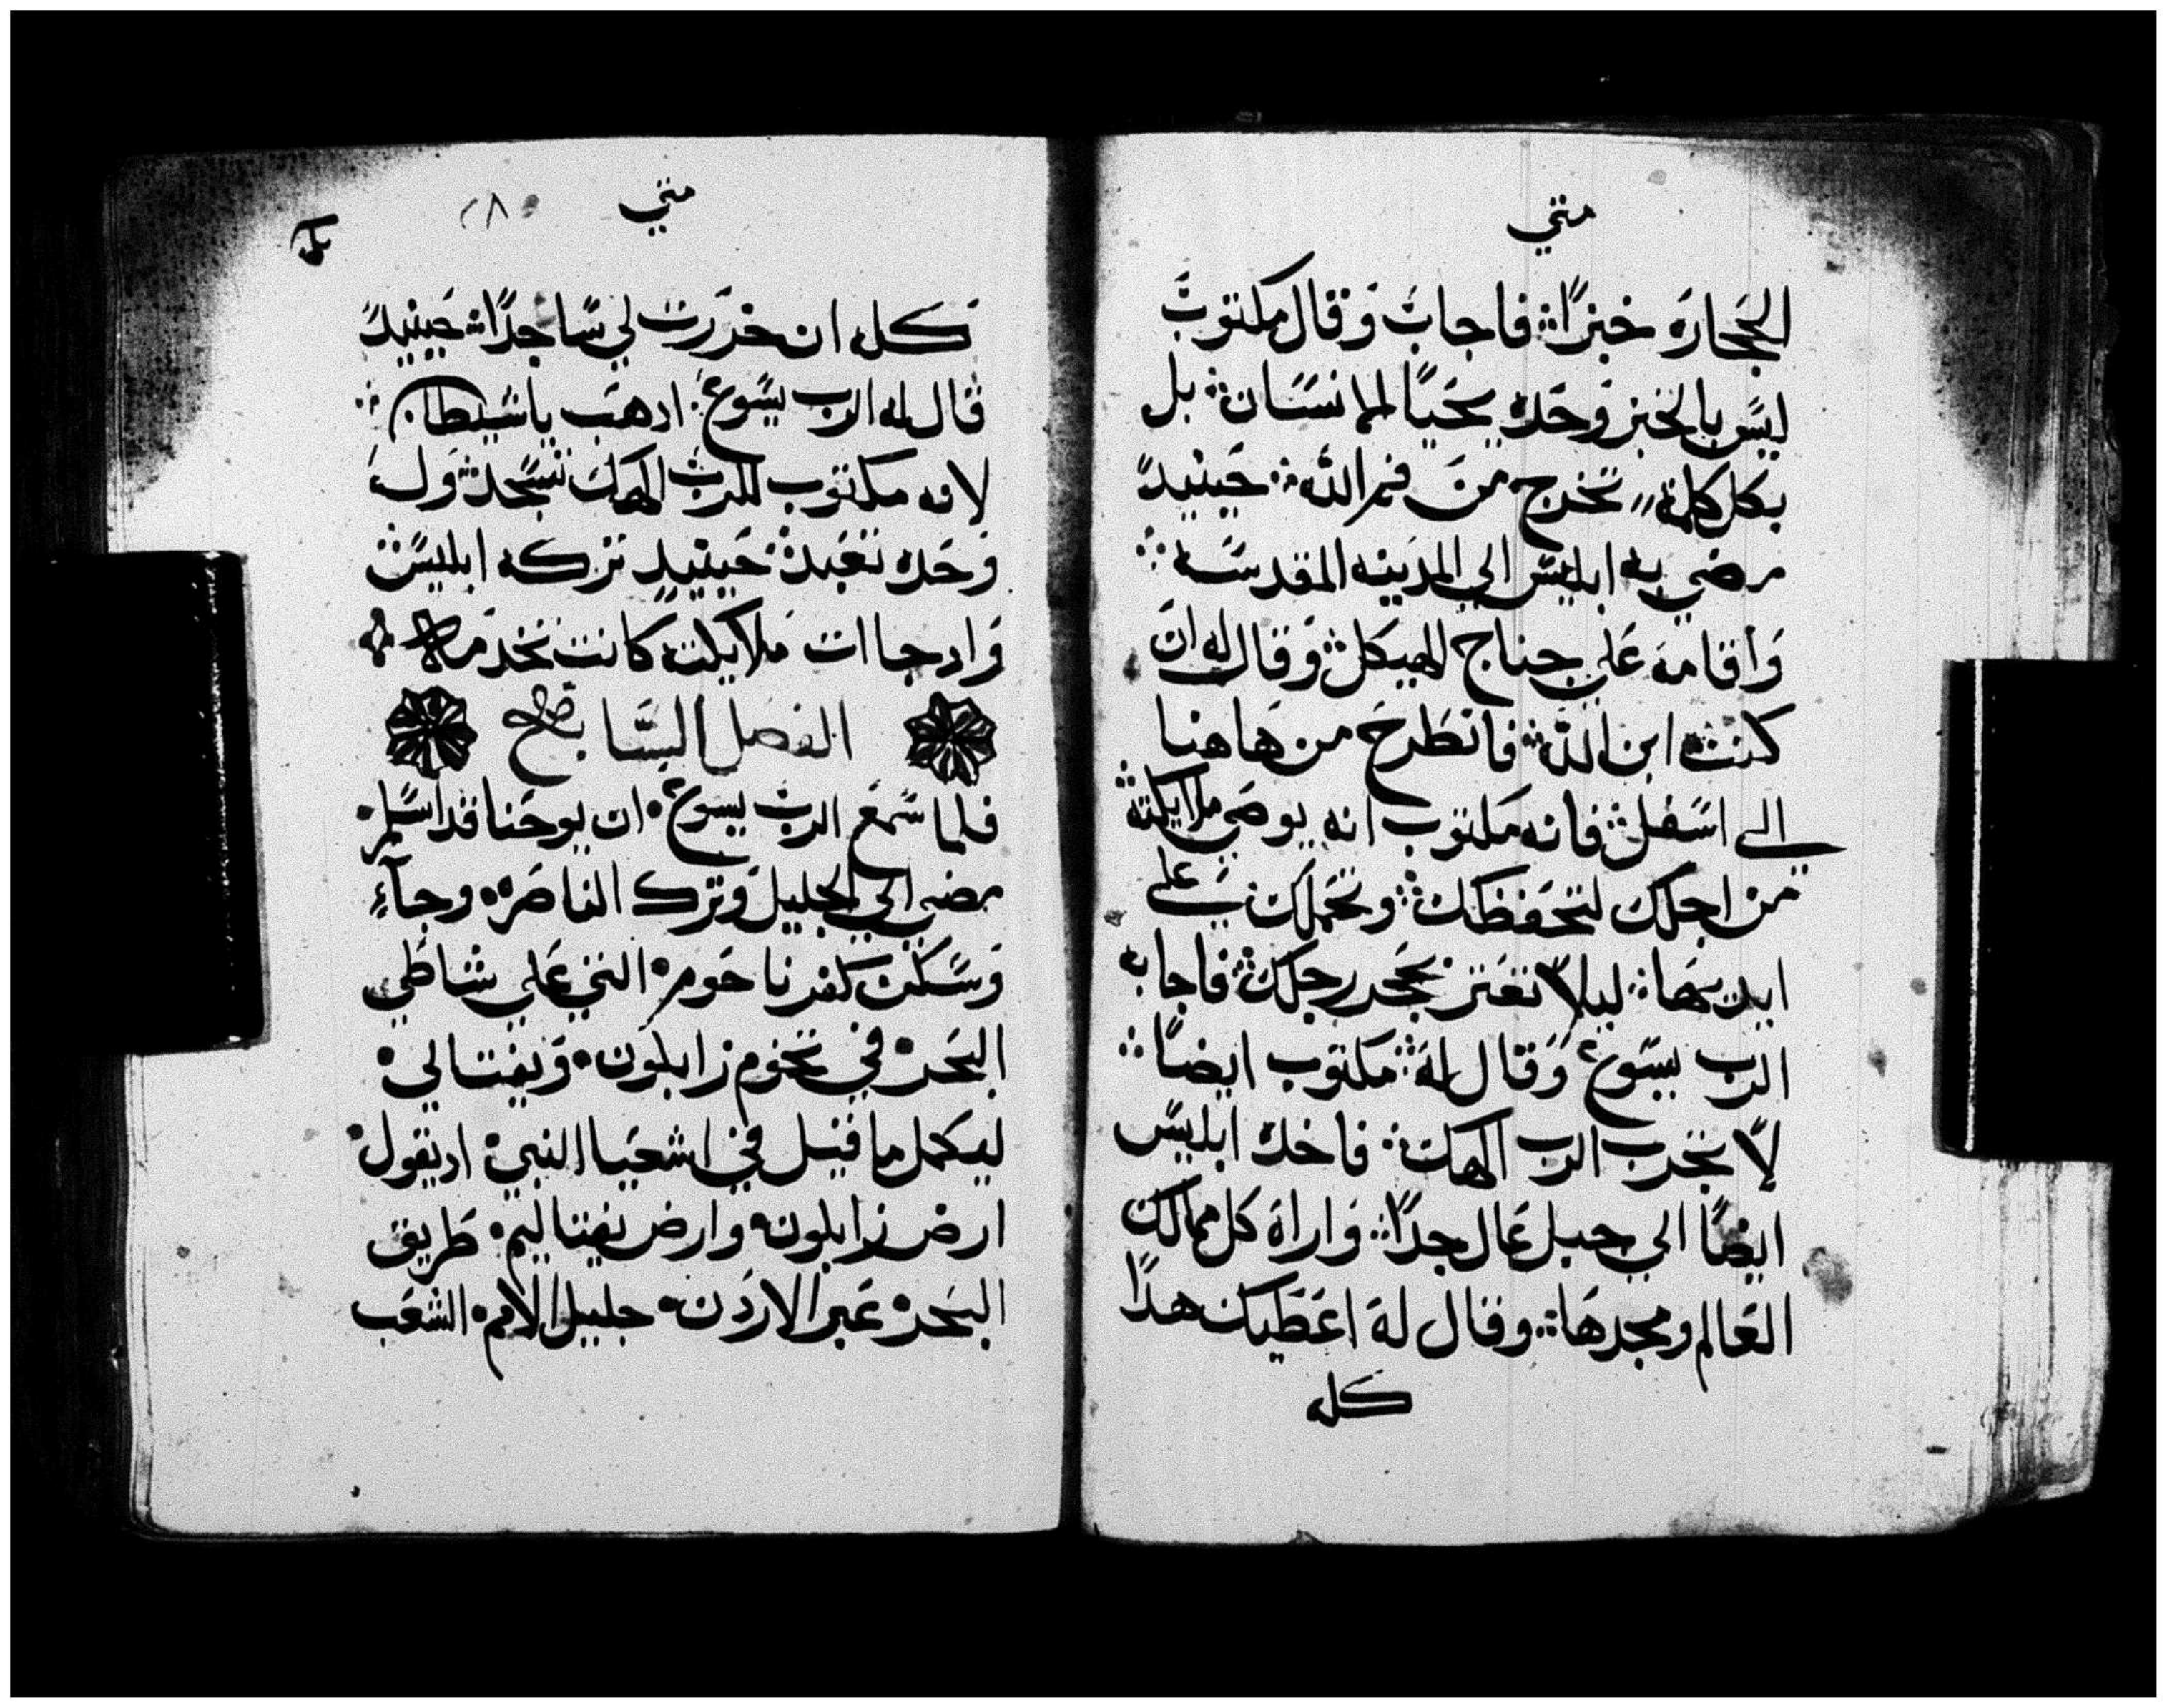 متي
الحجارة خبزًا فاجاب وقال مكتوب
ليس بالخبز وحده يحيًا الانسان بل
بكل كلمة تخرج من فم الله حينيدً
مضي به ابليس الي المدينه المقدسه
واقامه علي جناح الهيكل وقال له ان
كنت ابن الله فانطرح من هاهنا
الي اسفل فانه مكتوب انه يوصي ملايكته
من اجلك لتحفظك وتحملك علي
ايديهما ليلا تعتر بحجر رجلك فاجابه
الرب يسوع وقال له مكتوب ايضًا
لا تجرب الرب الهك فاخده ابليس
ايضًا الي جبل عال جدًا واراه كل ممالك
العالم ومجدها وقال له اعطيك هدا
كله
متي
٢٨
كله ان خررت لي ساجدًا حينيدً
قال له الرب يسوع ادهب ياشيطان
لانه مكتوب للرب الهك تسجد وله
وحده تعبد حينيدٍ تركه ابليس
وادجاات ملايكته كانت تخدمه
الفصل السابع
فلما سمع الرب يسوع ان يوحنا قد اسلم
مضي الي الجليل وترك الناصره وجآء
وسكن كفرناحوم التي علي شاطي
البحر في تخوم زابلون ونفتالي
ليكمل ما قيل في اشعيا النبي اديقول
ارض زابلون وارض نفتاليم طريق
البحر عبر الاردن جليل الامم الشعب